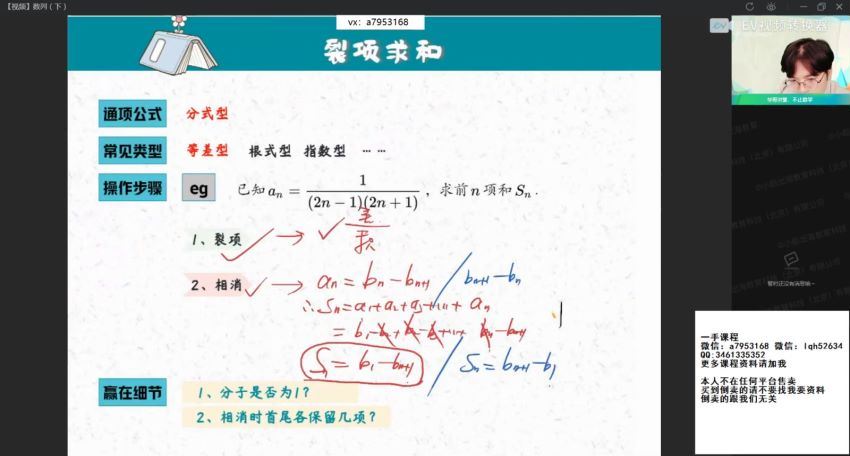 【视频】数列（下）
vx: a7953168
EV视频转换器
裂项求和
通项公式 分式型
常见类型 等差型 根式型 指数型 ……
操作步骤 eg 已知 aₙ = 1/((2n−1)(2n+1))，求前 n 项和 Sₙ.
1、裂项 → ✓ 差/积
2、相消 → aₙ = bₙ − bₙ₊₁ / bₙ₊₁ − bₙ
∴ Sₙ = a₁ + a₂ + a₃ + … + aₙ
= b₁ − b₂ + b₂ − b₃ + … + bₙ − bₙ₊₁
Sₙ = b₁ − bₙ₊₁ / Sₙ = bₙ₊₁ − b₁
赢在细节 1、分子是否为1？
2、相消时首尾各保留几项？
学而对暂，不止数学
暂时还没有消息哦~
一手课程
微信: a7953168 微信: lqh52634
QQ:3461335352
更多课程资料请加我
本人不在任何平台售卖
买到倒卖的请不要找我要资料
倒卖的跟我们无关